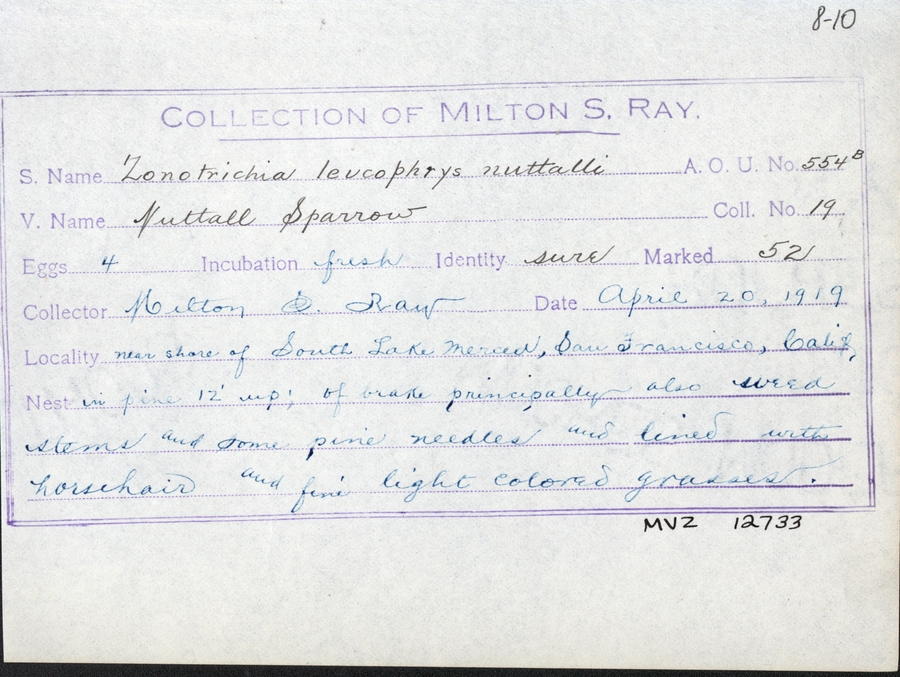 8-10
COLLECTION OF MILTON S. RAY.
S. Name Zonotrichia leucophrys nuttalli A. O. U. No. 554B
V. Name Nuttall Sparrow Coll. No. 19
Eggs 4 Incubation fresh Identity sure Marked 52
Collector Milton S. Ray Date April 20, 1919
Locality near shore of South Lake Merced, San Francisco, Calif,
Nest in pine 12' up; of brake principally also weed
stems and some pine needles and lined with
horsehair and fine light colored grasses.
MVZ 12733